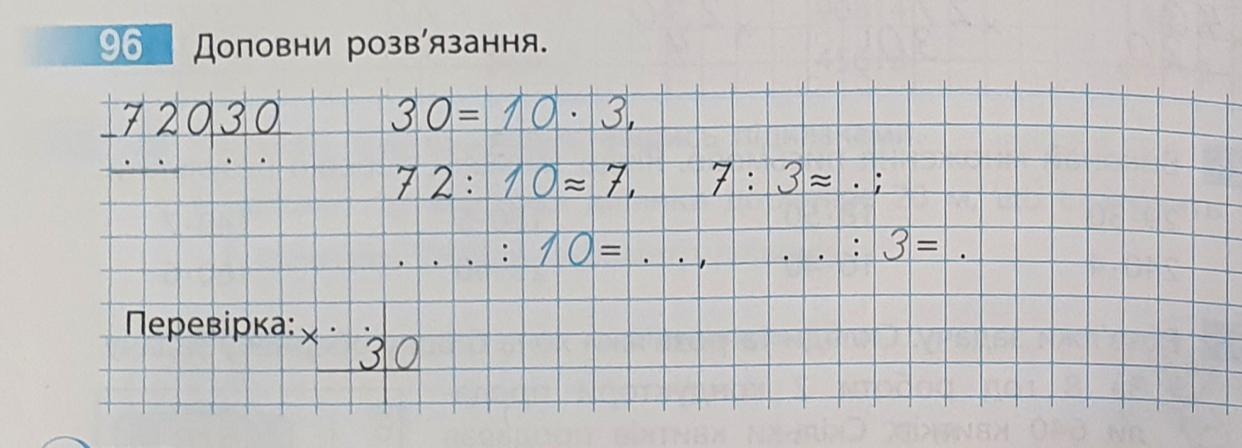 96 Доповни розв'язання.
720 30 30 = 10 · 3,
. . . . 72 : 10 ≈ 7, 7 : 3 ≈ . ;
. . . : 10 = . . , . . : 3 = .
Перевірка: × . .
30